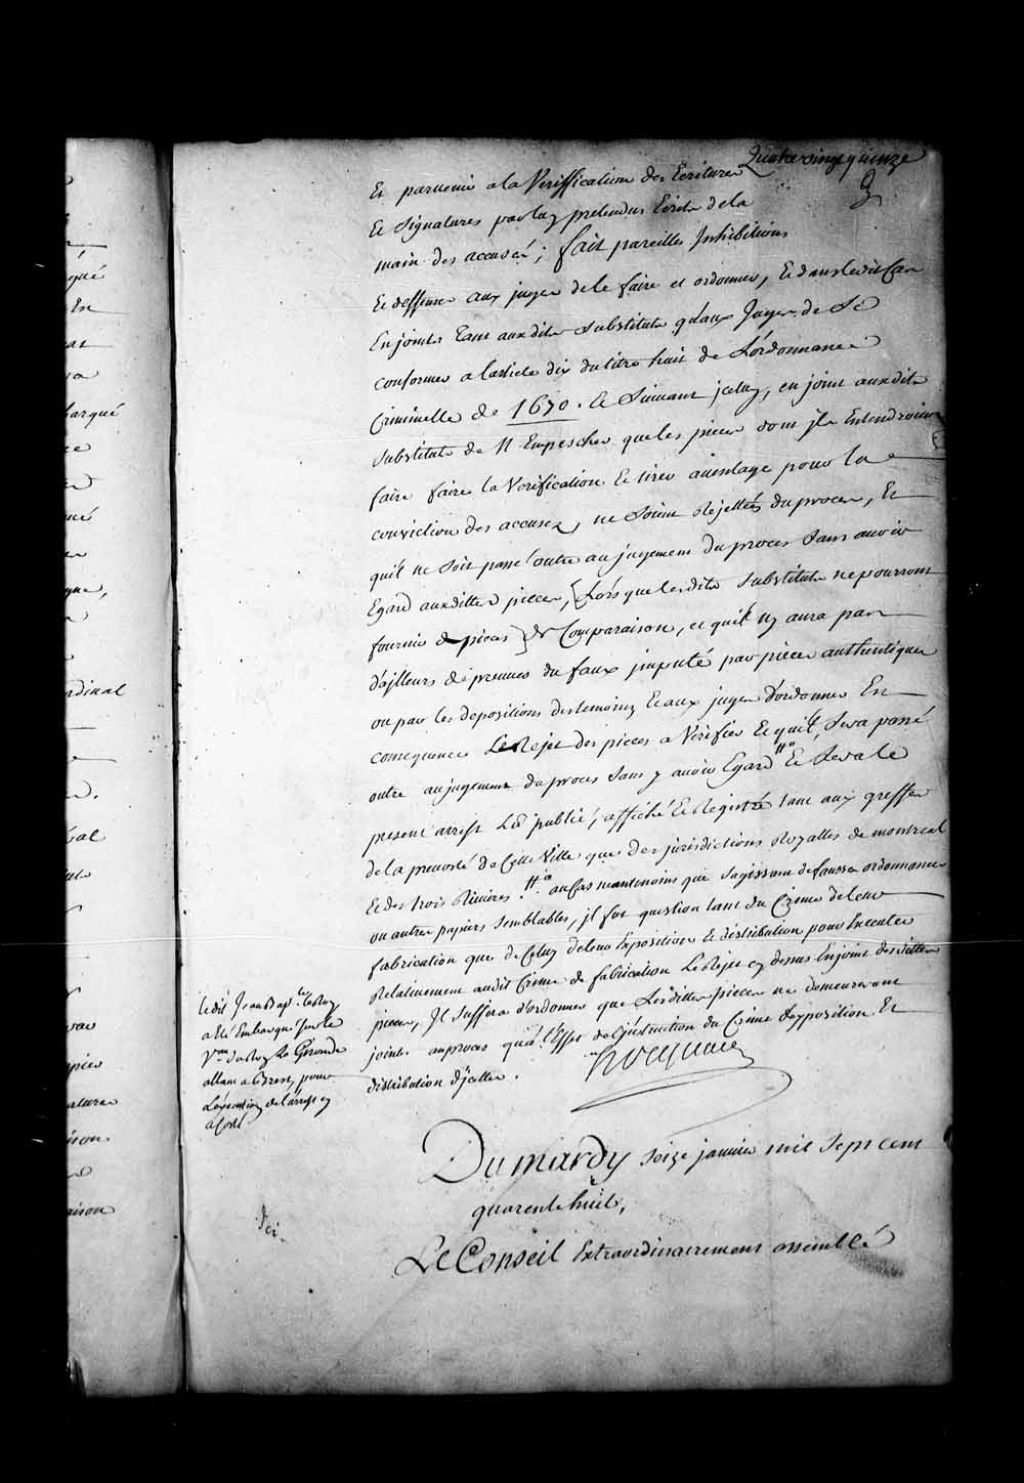 Quatre vingt quinze
Et parvenir a la Veriffication des Ecritures
Et Signatures par luy pretendus Ecrits de la
main des accusés; fait pareilles Inhibitions
Et deffenses aux juges de le faire et ordonner, Et dans ledit Cas
Enjoint tant auxdits Substituts qu'aux Juges de Se
conformer a l'article dix du titre huit de L'ordonnance
Criminelle de 1670. Et Suivant jceluy, enjoint auxdits
Substituts de N'Empescher que les pieces dont jls Entendroient
faire faire la Verification Et tirer avantage pour la
conviction des accusez, ne Soient Rejettées du procez, Et
qu'il ne Soit passé outre au jugement du procez Sans avoir
Egard auxdittes pieces, [Lorsque lesdits Substituts ne pourront
fournir de pieces] de Comparaison, et qu'il ny aura pas
d'ailleurs de preuves du faux jmputé par pieces authentiques
ou par les depositions des temoins Et aux juges d'ordonner En
consequence Le Rejet des pieces a Verifier Et qu'il Sera passé
outre au jugement du procez Sans y avoir Egard Et Sera le
present arrest Lû publié, affiché Et Registré tant aux greffes
de la prevosté de Cette Ville que des jurisdictions Royalles de montreal
Et des trois Rivieres. au Cas neantmoins que Sagissant de fausses ordonnances
ou autres papiers Semblables, jl fut question tant du Crime de leur
fabrication que de Celuy de leur Exposition Et distribution pour Executer
Relativement audit Crime de fabrication Le Rejet cy dessus Enjoint desdittes
pieces, Jl Suffira d'ordonner que Lesdittes pieces ne demeureront
jointes au procez qu'a l'Effet de l'jnstruction du Crime d'exposition Et
distribution d'jcelles.
hocquart
Ledit Jean Bapte
a Eté Embarqué Sur le
Vau du Roy La Gironde
allant a Brest, pour
L'execution de l'arrest cy
a Coté
Du mardy Seize janvier mil Sept cent
quarente huit,
Le Conseil Extraordinairement assemblé